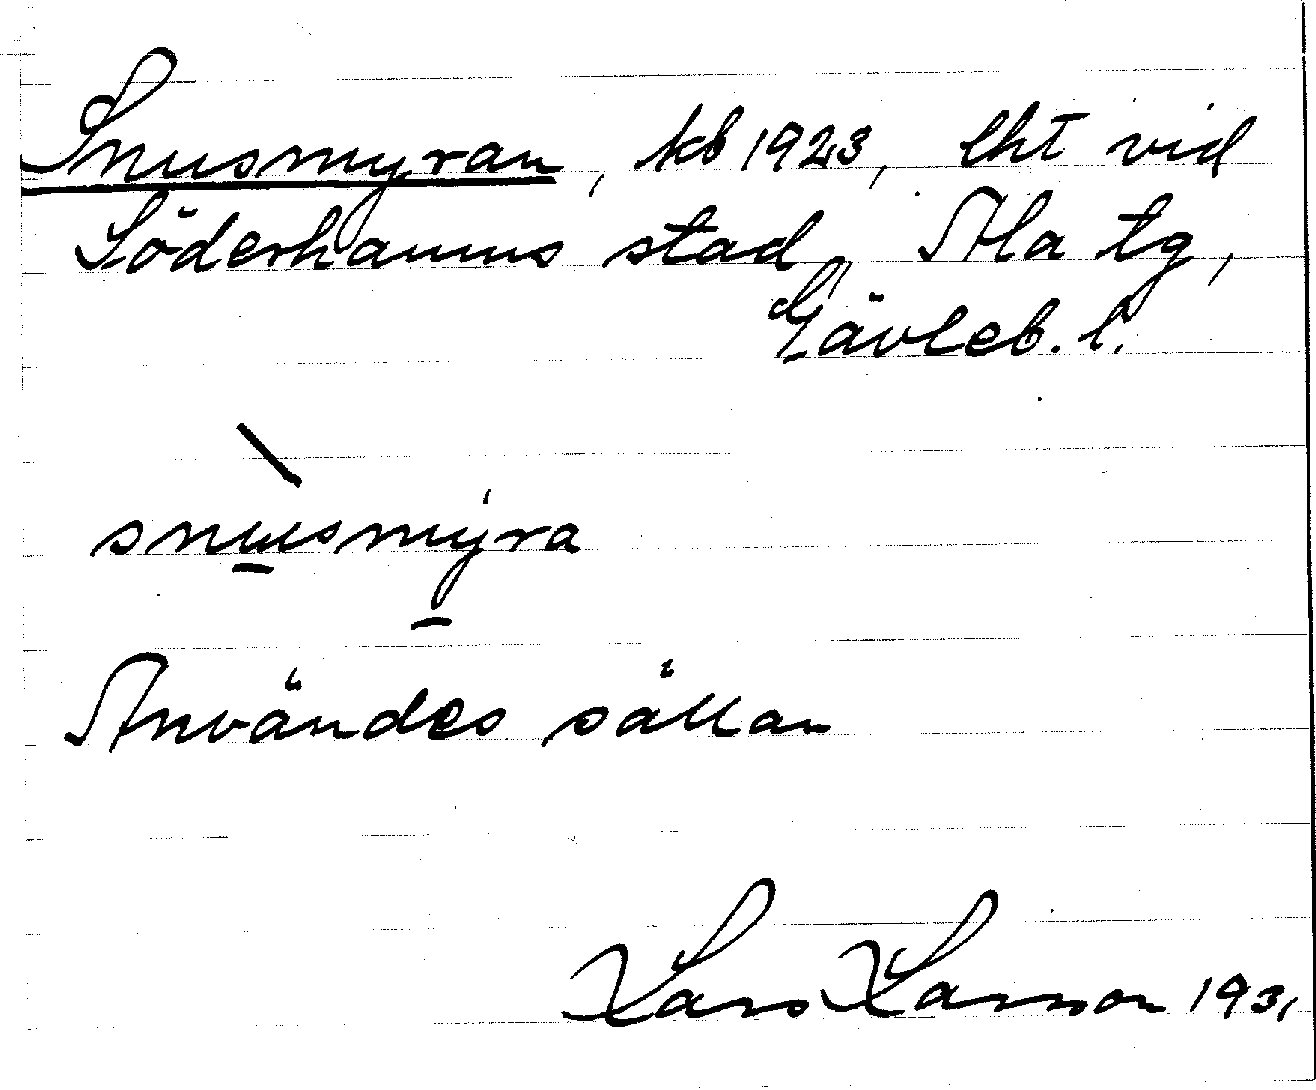 Snusmyran, kb 1923, lht vid
Söderhamns stad, Ala tg,
Gävleb. l.
snusmýra
Användes sällan
Lars Larsson 1931